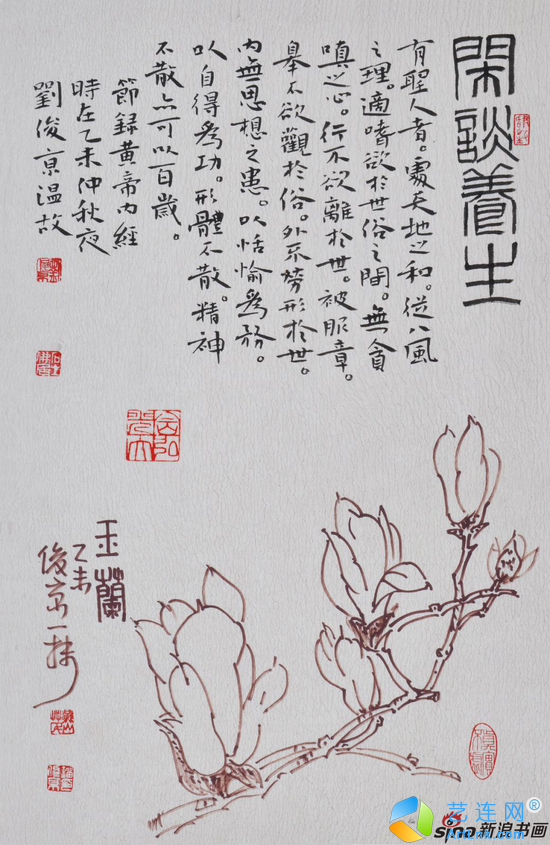 閑談養生
有聖人者。處天地之和。從八風
之理。適嗜欲於世俗之間。無貪
嗔之心。行不欲離於世。被服章。
舉不欲觀於俗。外不勞形於世。
內無思想之患。以恬愉爲務。
以自得爲功。形體不散。精神
不散亦可以百歲。
節録黃帝內經
時在乙未仲秋夜
劉俊京溫故
玉蘭
乙未
俊京一
艺连网
sina新浪书画